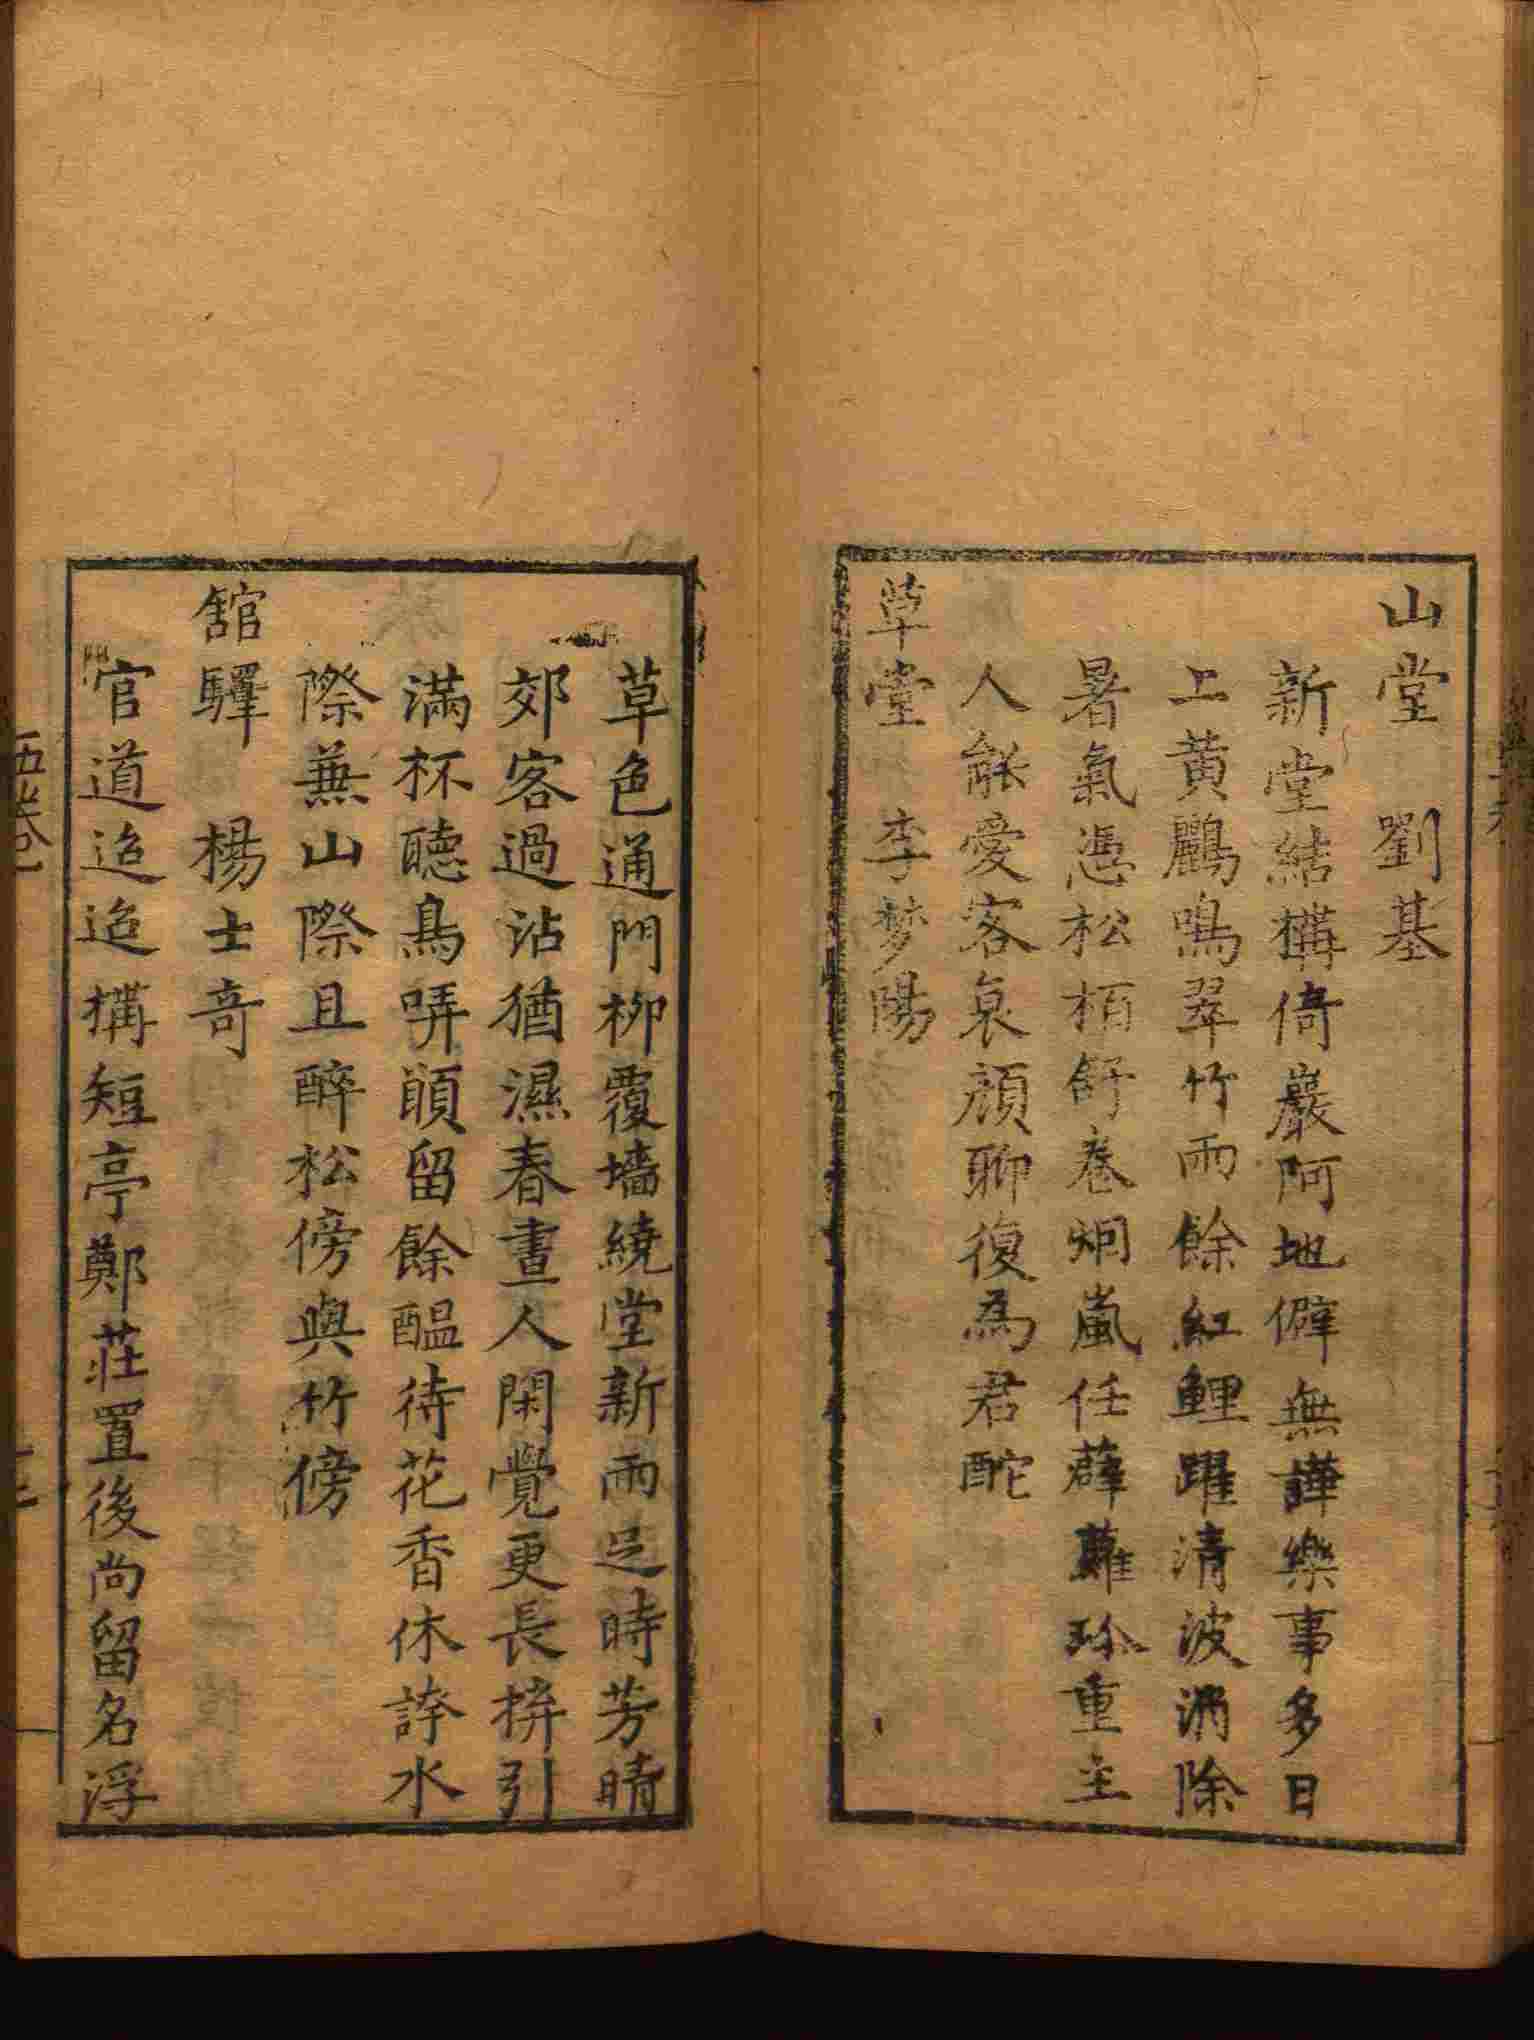 山堂　劉基
新堂結構倚巖阿地僻無譁樂事多日
上黃鸝鳴翠竹雨餘紅鯉躍清波消除
暑氣憑松栢舒卷烟嵐任薜蘿珎重主
人能愛客衰顏聊復爲君酡
草堂　李梦陽
草色通門柳覆墻繞堂新雨足時芳晴
郊客過沾猶濕春晝人閑覺更長拚引
滿杯聽鳥哢頭留餘醖待花香休誇水
際無山際且醉松傍與竹傍
舘驛　楊士竒
官道迢迢搆短亭鄭莊置後尚留名浮